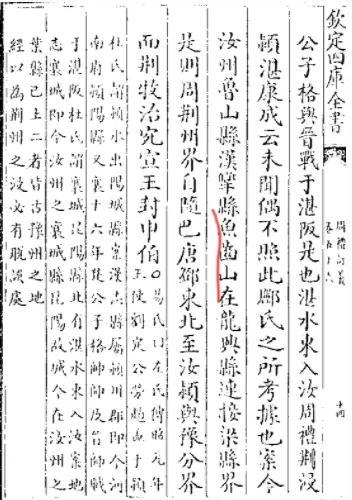 欽定四庫全書
周禮訂義
卷五十六
十四
公子格與晉戰于湛阪是也湛水東入汝周禮荆浸
潁湛康成云未聞偶不照此酈氏之所考據也案今
汝州魯山縣漢犨縣魚齒山在龍興縣連接梁縣界
是則周荆州界自隨巴唐鄧東北至汝潁與豫分界
而荆牧治宛宣王封申伯○易氏曰左氏傳昭元年
王使劉定公勞趙孟于潁
杜氏謂潁水出陽城縣案漢志縣屬潁川郡即今河
南府潁陽縣又襄十六年楚公子格帥師及晉師戰
于湛阪杜氏謂襄城昆陽縣北有湛水東入汝案地
志襄城即今汝州之襄城縣昆陽故城今在汝州之
葉縣已上二者皆古豫州之地
經以為荆州之浸必有脫誤處